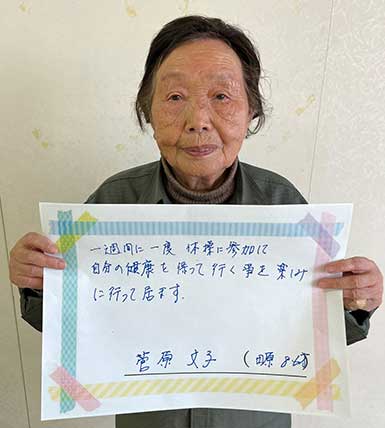 一週間に一度 体操に参加して
自分の健康を保って行く事を楽しみ
に行って居ます。
菅原 文子 (田原